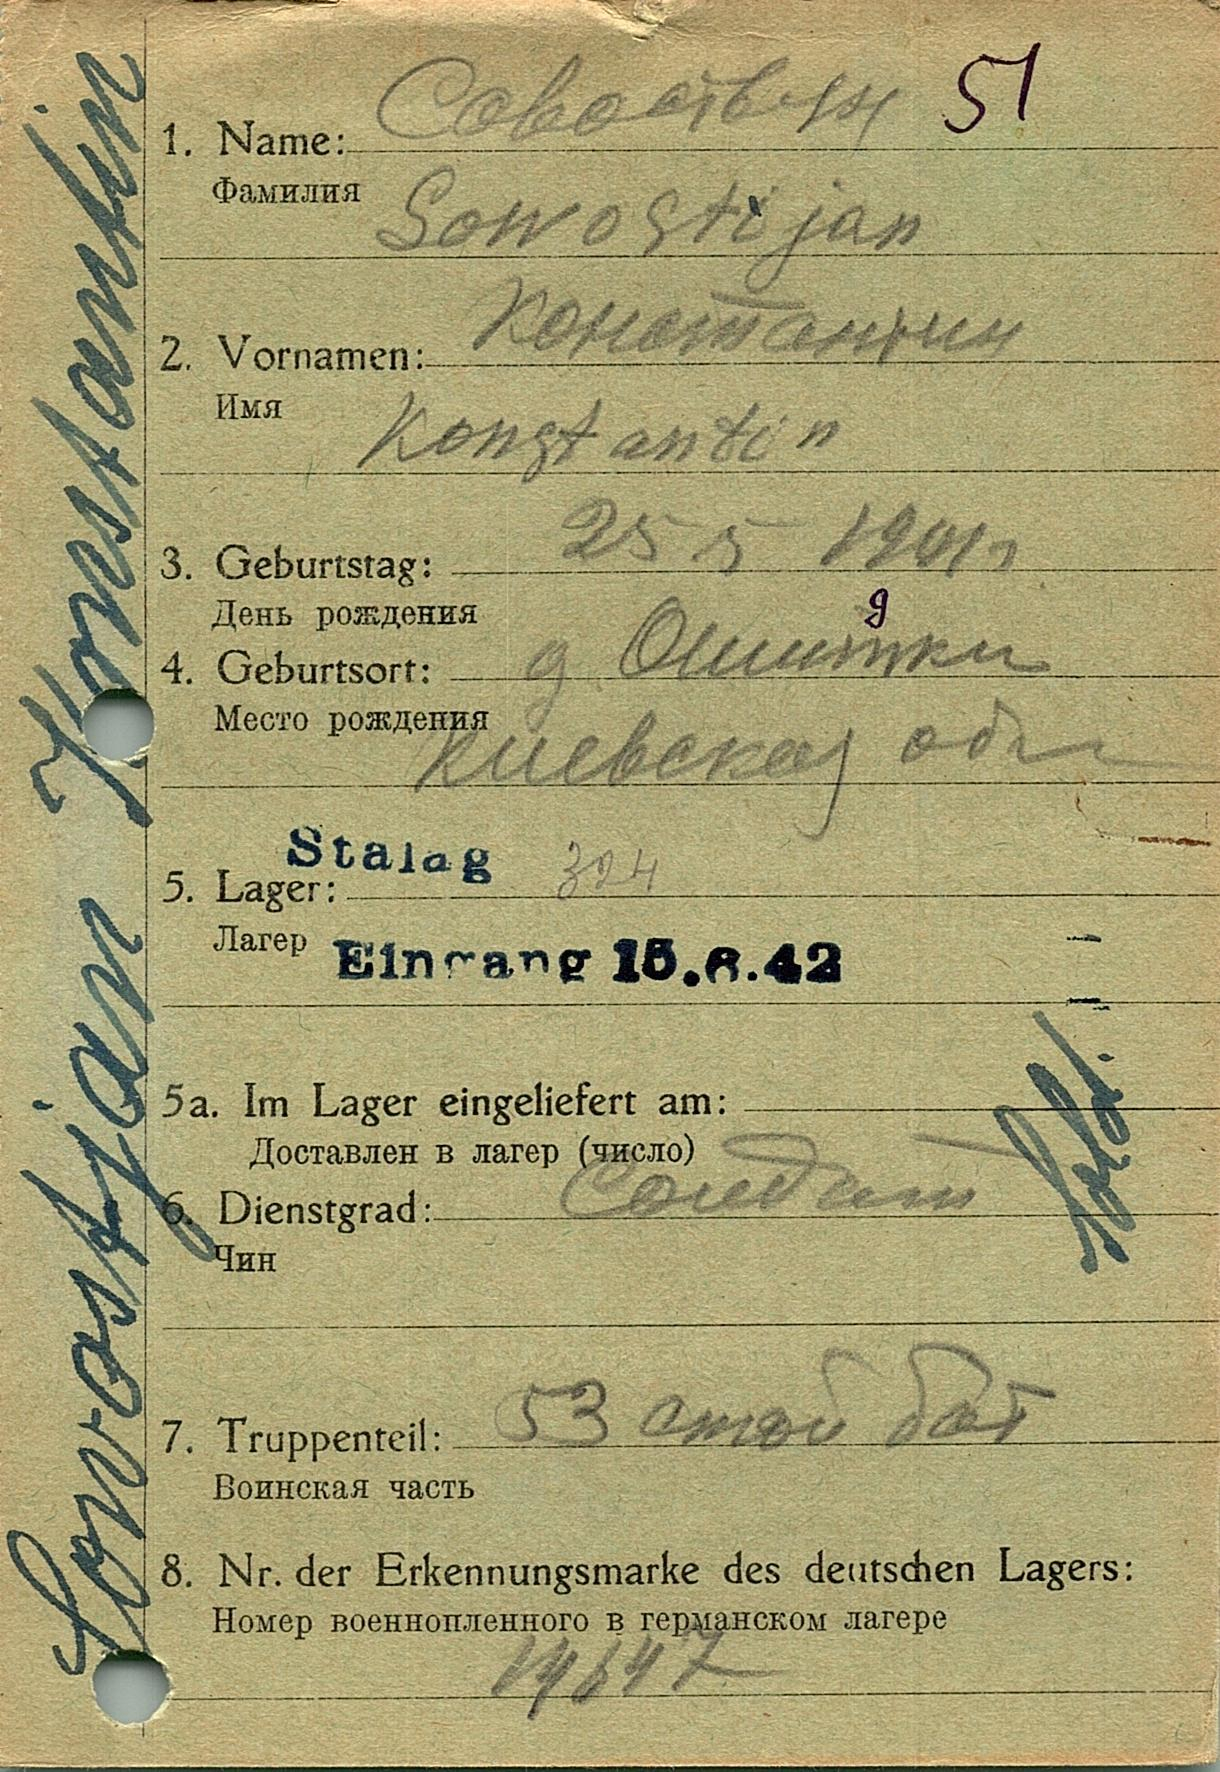 51
1. Name: Совостьян
Фамилия
Sowostijan
2. Vornamen: Константин
Имя
Konstantin
3. Geburtstag: 25 5 1901 г
День рождения
4. Geburtsort: д
Место рождения
Киевская обл
Stalag 324
5. Lager:
Лагер
Eingang 15.6.42
5a. Im Lager eingeliefert am:
Доставлен в лагер (число)
6. Dienstgrad: Солдат
Sold.
Чин
7. Truppenteil: 53 строй бат
Воинская часть
8. Nr. der Erkennungsmarke des deutschen Lagers:
Номер военнопленного в германском лагере
Sowostjan Konstantin